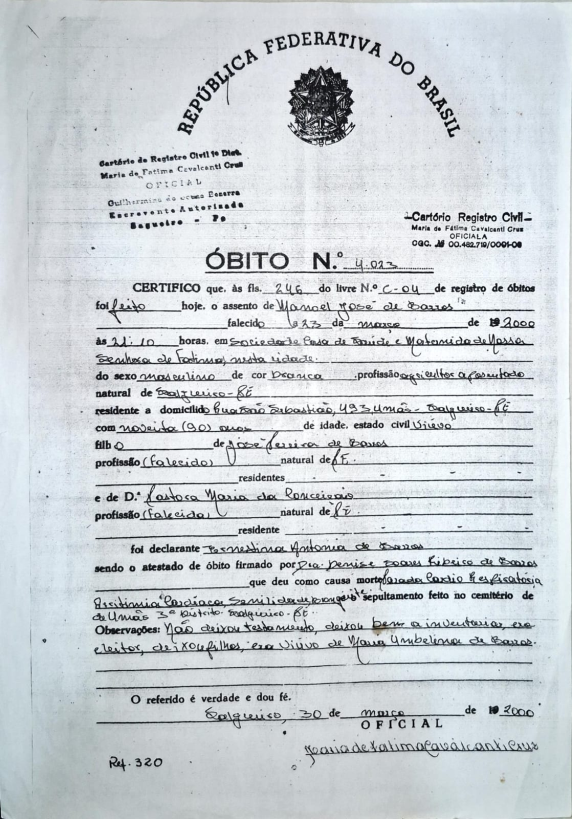 REPÚBLICA FEDERATIVA DO BRASIL
Cartório de Registro Civil 1º Dist.
Maria de Fatima Cavalcanti Cruz
OFICIAL
Guilhermina de Bezerra
Escrevente Autorizada
Sagueiro - Pe
Cartório Registro Civil
Maria de Fátima Cavalcanti Cruz
OFICIALA
CGC. 00.482.719/0001-08
ÓBITO N.º 4.023
CERTIFICO que, às fls. 246 do livre N.º C-04 de registro de óbitos
foi feito hoje, o assento de Manoel José de Barros
falecido a 23 de março de 2000
às 21:10 horas, em Sociedade Casa de Saúde e Maternidade Nossa
Senhora de Fatima, nesta cidade.
do sexo masculino de cor branca profissão agricultor aposentado
natural de Salgueiro-PE
residente a domicilido Rua São Sebastião, 493 Umãs - Salgueiro-PE
com noventa (90) anos de idade, estado civil Viúvo
filho de José Pereira de Barros
profissão (falecido) natural de PE.
residentes - - -
e de D.ª Pastora Maria da Conceição
profissão (falecida) natural de PE.
residente - - -
foi declarante Ernestina Antonia de Barros
sendo o atestado de óbito firmado por Dra. Denise Soares Ribeiro de Barros
que deu como causa morte Parada Cardio Respiratoria
Arritimia Cardiaca Senilidade sepultamento feito no cemitério de
de Umãs 3º Distrito Salgueiro-PE
Observações: Não deixou testamento, deixou bem a inventariar, era
eleitor, deixou filhos, era Viúvo de Maria Umbelina de Barros.
O referido é verdade e dou fé.
Salgueiro, 30 de março de 2000
OFICIAL
Maria de Fatima Cavalcanti Cruz
Ref. 320